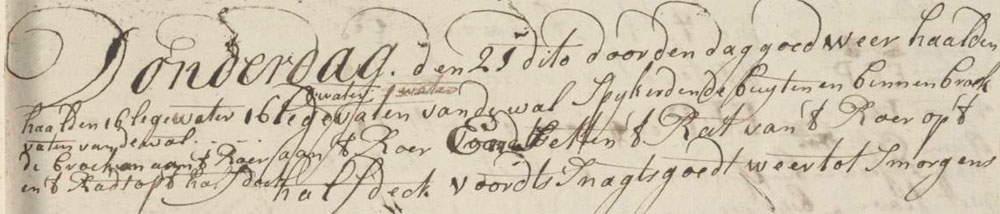 Donderdag. den 21 dito door den dag goed weer haalden
water. 1 water
haalden 16 legewater 16 legevaten van de wal Spykerden de buyten en binnen broek
vaten van de wal . . .
de broek an aan't Roer aan't Roer En setten't Rat van't Roer op't
en't Rad op't half deck half deck voordts Snagts goedt weer tot Smorgens